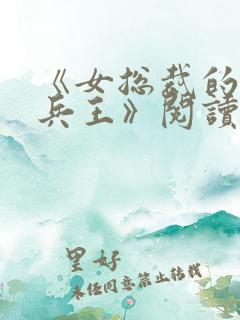 《女总裁的
兵王》阅读
里好
未经同意禁止转载